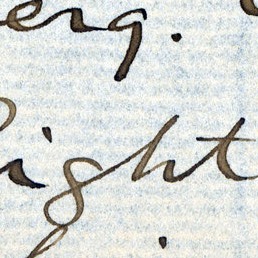 erg.
ight